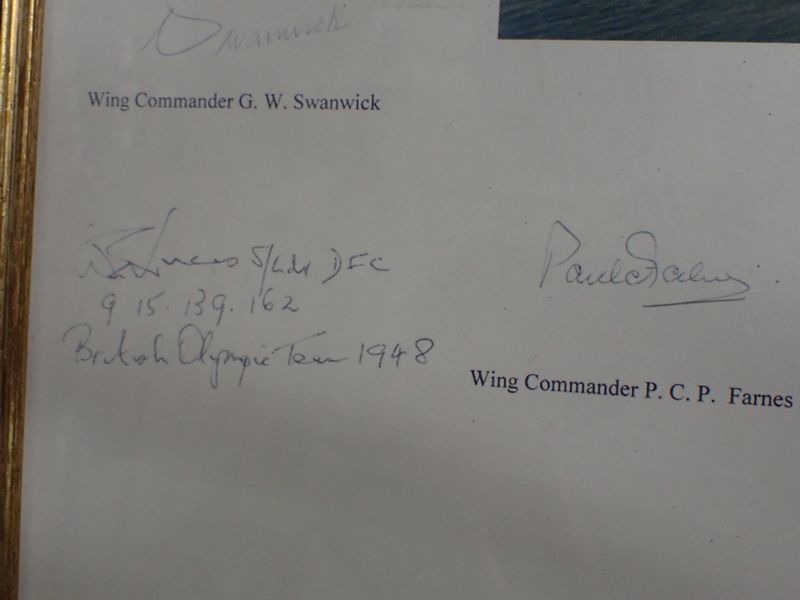 Swanwick
Wing Commander G. W. Swanwick
Lucas S/Ldr DFC
9 15. 139. 162
British Olympic Team 1948
Paul Farnes
Wing Commander P. C. P. Farnes